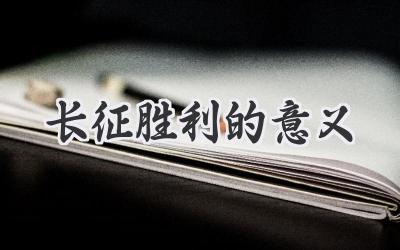 长征胜利的意义